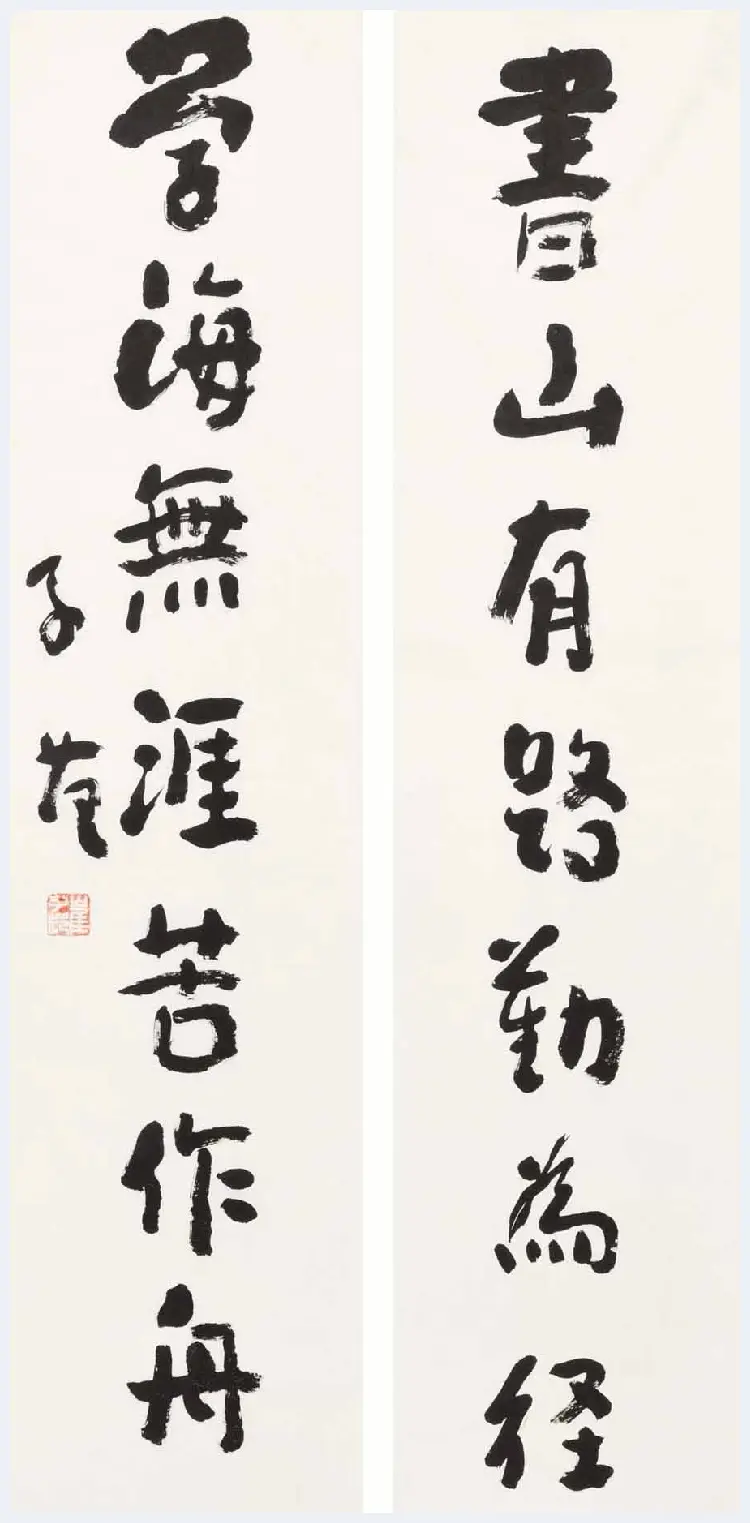 書山有路勤為径
学海無涯苦作舟
子莊